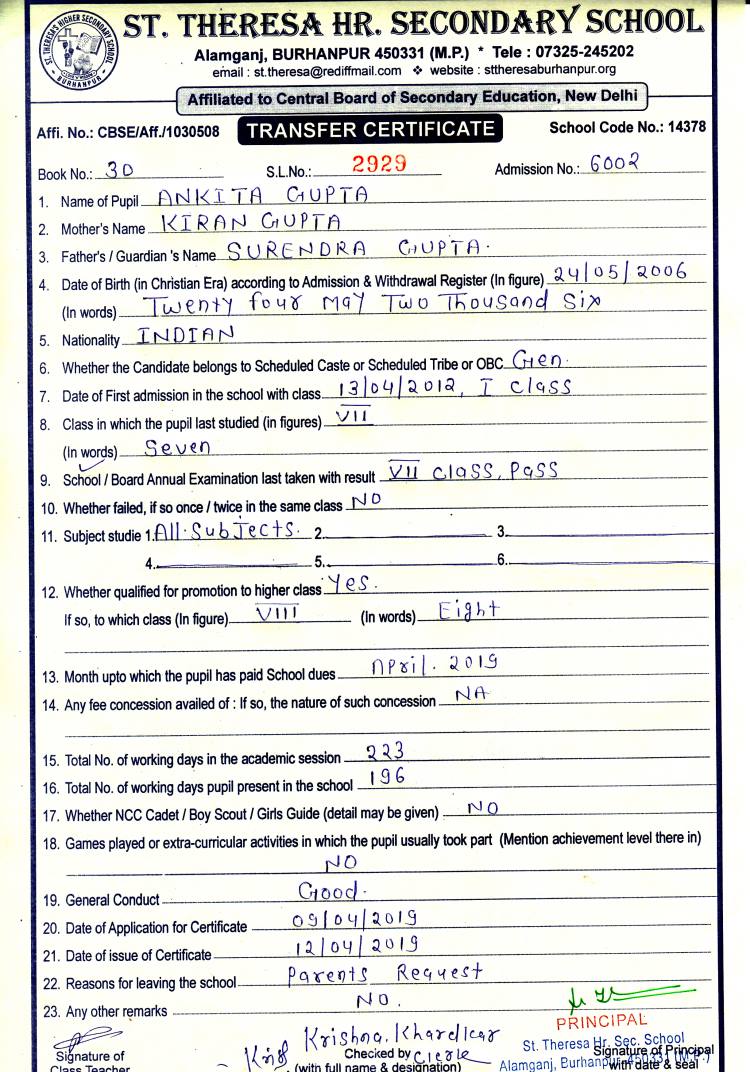 ST. THERESA HR. SECONDARY SCHOOL
Alamganj, BURHANPUR 450331 (M.P.) * Tele : 07325-245202
email : st.theresa@rediffmail.com ❖ website : sttheresaburhanpur.org
ST. THERESA'S HIGHER SECONDARY SCHOOL
BURHANPUR
Affiliated to Central Board of Secondary Education, New Delhi
Affi. No.: CBSE/Aff./1030508 TRANSFER CERTIFICATE School Code No.: 14378
Book No.: 30 S.L.No.: 2929 Admission No.: 6002
1. Name of Pupil ANKITA GUPTA
2. Mother's Name KIRAN GUPTA
3. Father's / Guardian 's Name SURENDRA GUPTA.
4. Date of Birth (in Christian Era) according to Admission & Withdrawal Register (In figure) 24/05/2006
(In words) Twenty four May Two Thousand Six
5. Nationality INDIAN
6. Whether the Candidate belongs to Scheduled Caste or Scheduled Tribe or OBC Gen.
7. Date of First admission in the school with class 13/04/2012, I Class
8. Class in which the pupil last studied (in figures) VII
(In words) Seven
9. School / Board Annual Examination last taken with result VII Class, Pass
10. Whether failed, if so once / twice in the same class NO
11. Subject studie 1. All Subjects. 2. 3.
4. 5. 6.
12. Whether qualified for promotion to higher class Yes.
If so, to which class (In figure) VIII (In words) Eight
13. Month upto which the pupil has paid School dues April. 2019
14. Any fee concession availed of : If so, the nature of such concession NA
15. Total No. of working days in the academic session 223
16. Total No. of working days pupil present in the school 196
17. Whether NCC Cadet / Boy Scout / Girls Guide (detail may be given) NO
18. Games played or extra-curricular activities in which the pupil usually took part (Mention achievement level there in)
NO
19. General Conduct Good.
20. Date of Application for Certificate 09/04/2019
21. Date of issue of Certificate 12/04/2019
22. Reasons for leaving the school Parents Request
23. Any other remarks NO.
PRINCIPAL
St. Theresa Hr. Sec. School
Alamganj, Burhanpur 450331 (M.P.)
Krishna. Khardkar
Signature of Checked by Clerk Signature of Principal
Class Teacher (with full name & designation) with date & seal